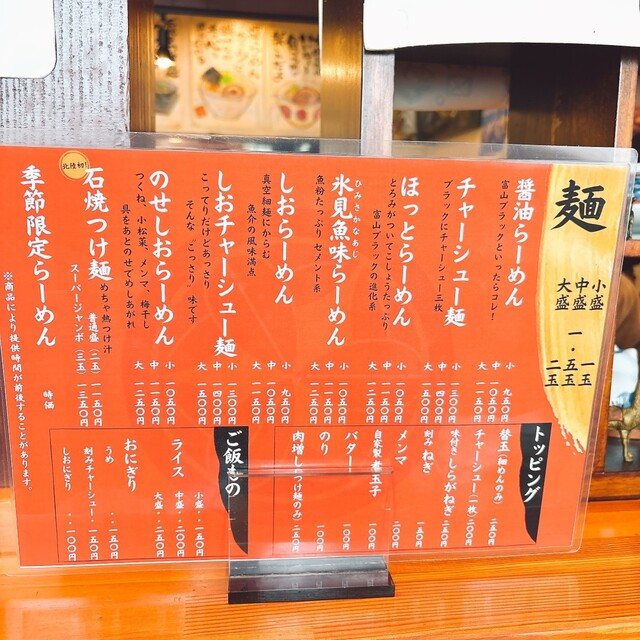 麺
小盛 一玉
中盛 一・五玉
大盛 二玉
醤油らーめん
富山ブラックといったらコレ!
小 九五〇円
中 一〇五〇円
大 一一五〇円
チャーシュー麺
ブラックにチャーシュー三枚
小 一三〇〇円
中 一四〇〇円
大 一五〇〇円
ほっとらーめん
とろみがついてこしょうたっぷり
富山ブラックの進化系
小 一〇五〇円
中 一一五〇円
大 一二五〇円
ひみさかなあじ
氷見魚味らーめん
魚粉たっぷりセメント系
小 一〇五〇円
中 一一五〇円
大 一二五〇円
しおらーめん
真空細麺にからむ
魚介の風味満点
小 九五〇円
中 一〇五〇円
大 一一五〇円
しおチャーシュー麺
こってりだけどあっさり
そんな"こっさり"味です
小 一三〇〇円
中 一四〇〇円
大 一五〇〇円
のせしおらーめん
つくね、小松菜、メンマ、梅干し
具をあとのせでめしあがれ
小 一〇五〇円
中 一一五〇円
大 一二五〇円
北陸初!
石焼つけ麺
めちゃ熱つけ汁
普通盛(二玉) 一一五〇円
スーパージャンボ(三玉) 一三五〇円
季節限定らーめん
時価
※商品により提供時間が前後することがあります。
トッピング
替玉(細めんのみ) 二五〇円
チャーシュー(一枚) 二〇〇円
味付きしらがねぎ 二五〇円
刻みねぎ 一五〇円
メンマ 二〇〇円
自家製 煮玉子 一五〇円
バター 一〇〇円
のり 一〇〇円
肉増し(つけ麺のみ) 二五〇円
ご飯もの
ライス
小盛・一〇〇円
中盛・一五〇円
大盛・二〇〇円
おにぎり
うめ ・一五〇円
刻みチャーシュー・一五〇円
しおにぎり ・一〇〇円